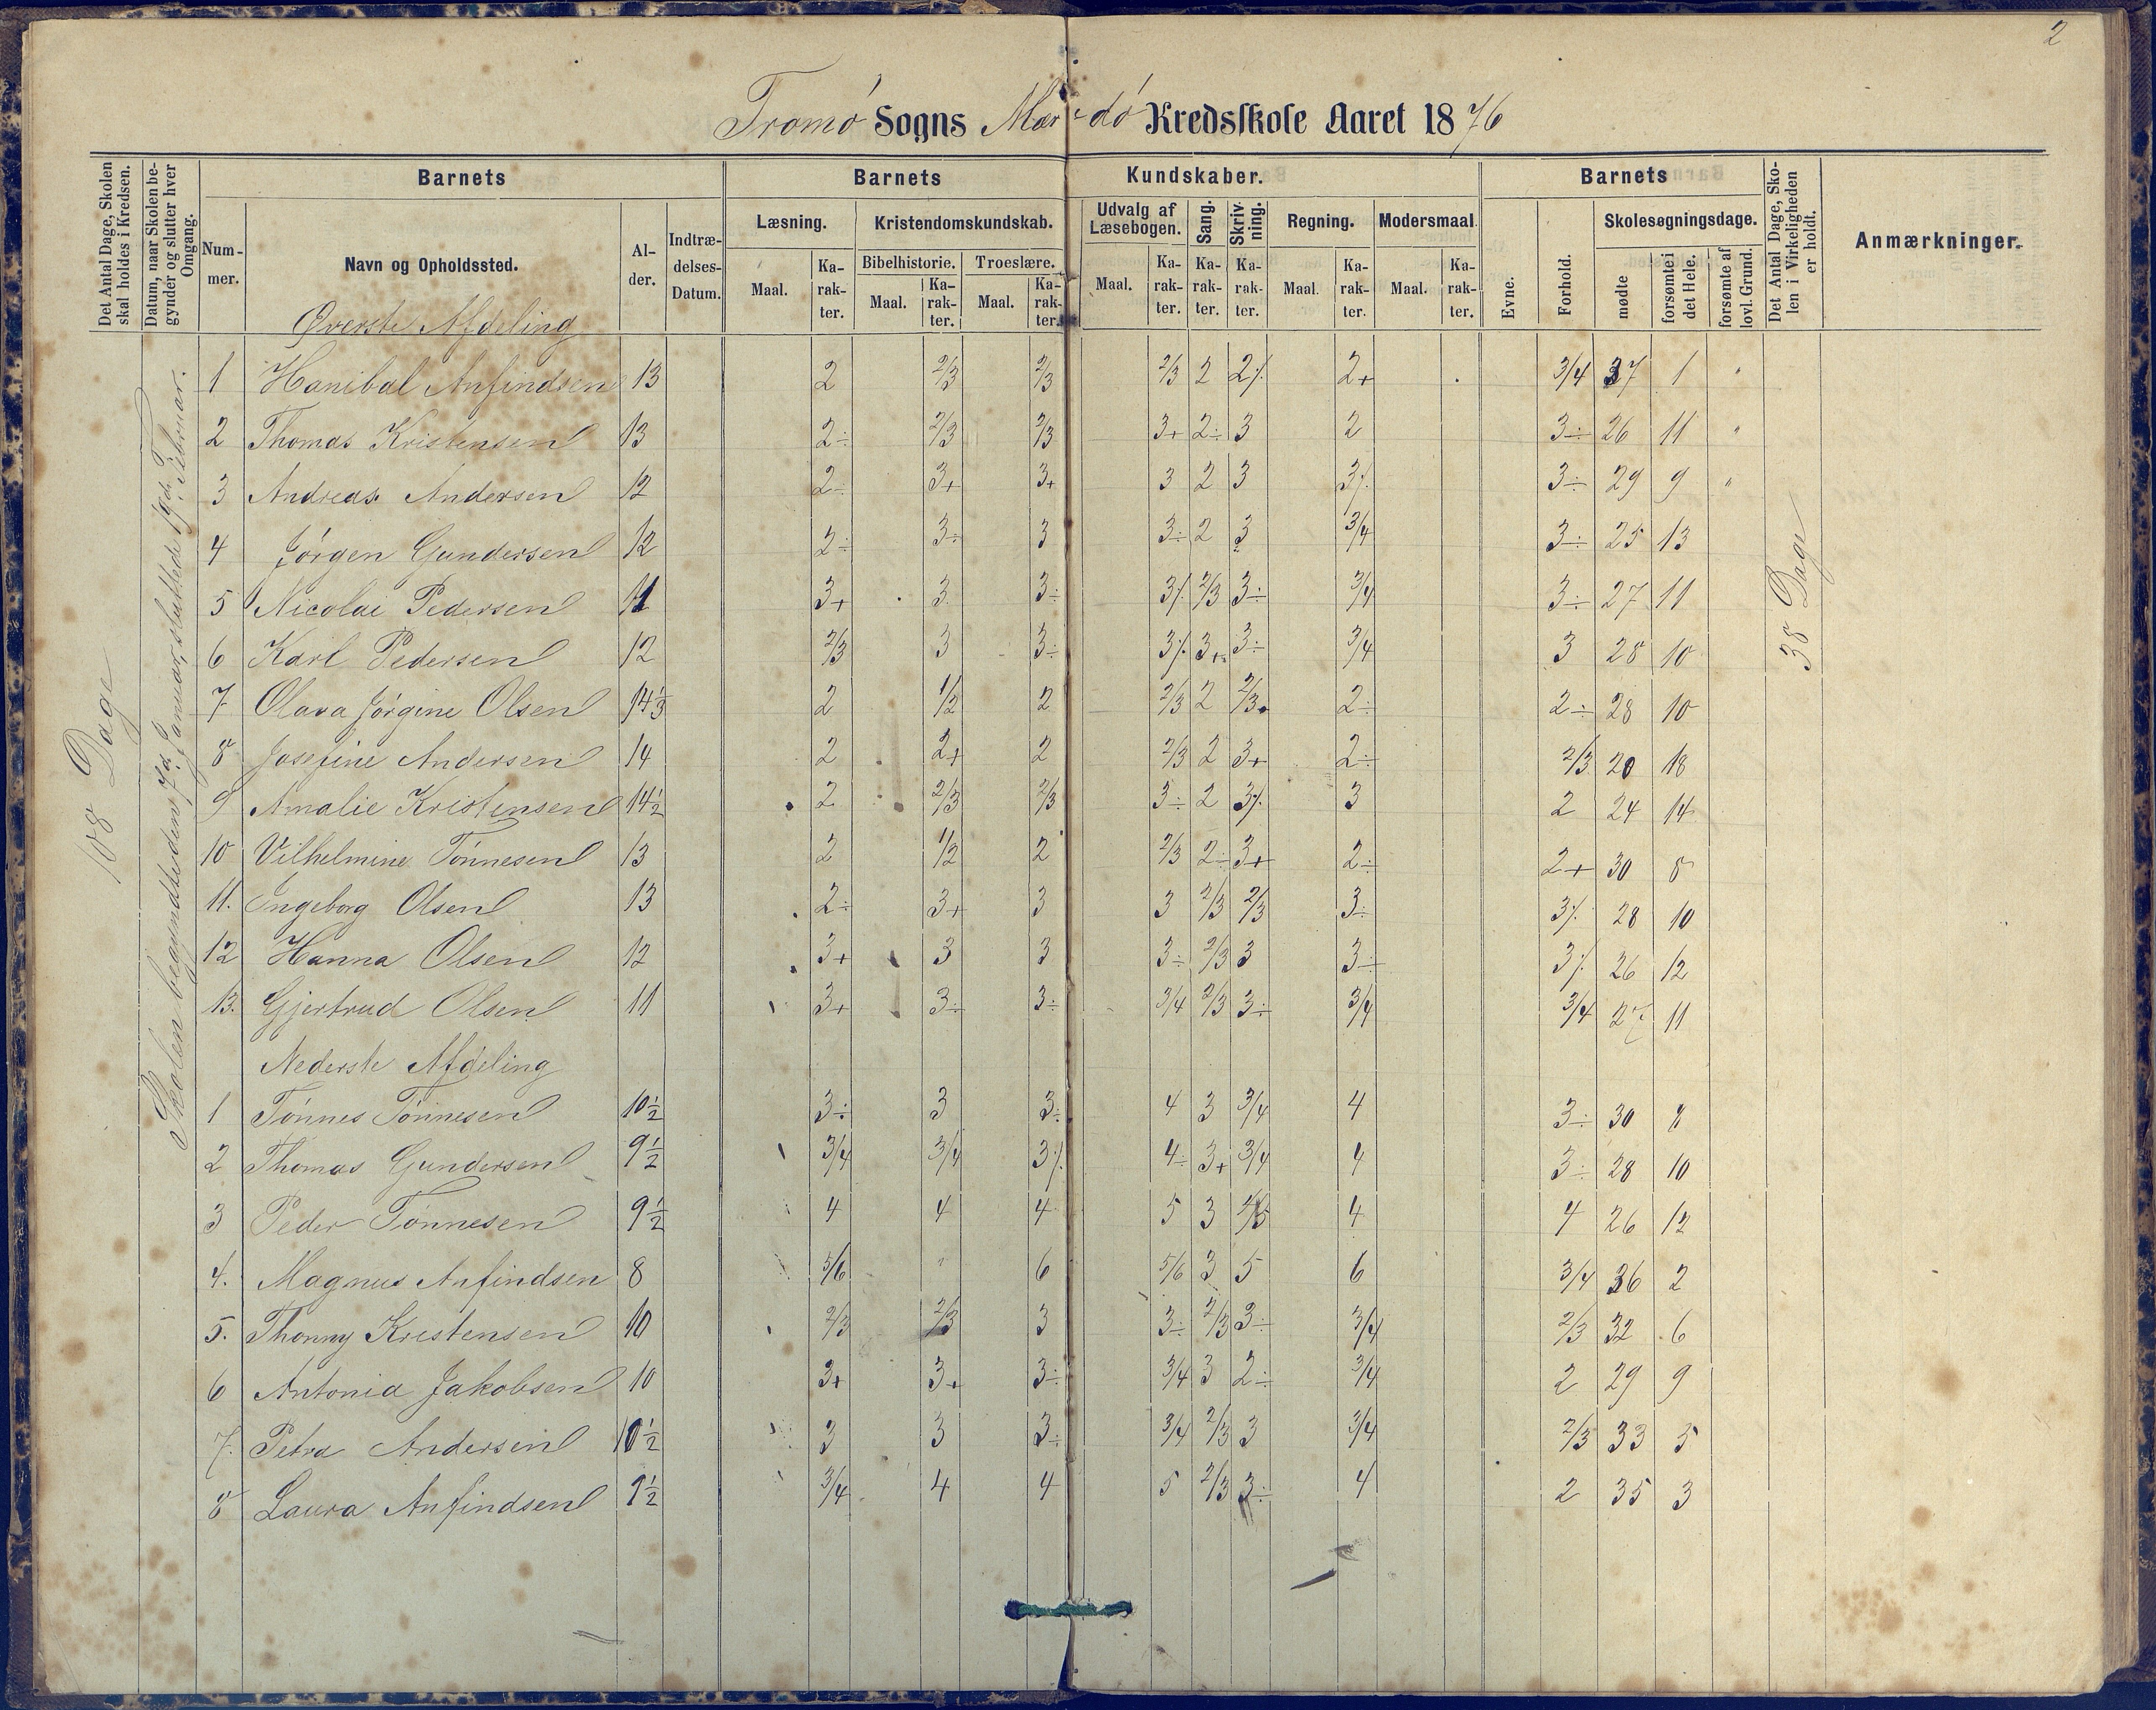 2
Tromø Sogns Mærdø Kredsskole Aaret 1876
Det Antal Dage, Skolen skal holdes i Kredsen.
Datum, naar Skolen begynder og slutter hver Omgang.
Barnets
Nummer.
Navn og Opholdssted.
Alder.
Indtrædelses-Datum.
Barnets Kundskaber.
Læsning.
Maal. Karakter.
Kristendomskundskab.
Bibelhistorie. Troeslære.
Maal. Karakter. Maal. Karakter.
Udvalg af Læsebogen.
Maal. Karakter.
Sang. Karakter.
Skrivning. Karakter.
Regning.
Maal. Karakter.
Modersmaal.
Maal. Karakter.
Barnets
Evne.
Forhold.
Skolesøgningsdage.
mødte
forsømte i det Hele.
forsømte af lovl. Grund.
Det Antal Dage, Skolen i Virkeligheden er holdt.
Anmærkninger.
108 Dage
Skolen begyndte den 7d. Januar, sluttede 19d. Februar.
38 Dage
Øverste Afdeling
1 Hanibal Anfindsen 13 2 2/3 2/3 2/3 2 2% 2+ 3/4 37 1 "
2 Thomas Kristensen 13 2÷ 2/3 2/3 3+ 2÷ 3 2 3÷ 26 11 "
3 Andreas Andersen 12 2÷ 3+ 3+ 3 2 3 3% 3÷ 29 9 "
4 Jørgen Gundersen 12 2÷ 3÷ 3 3÷ 2 3 3/4 3÷ 25 13
5 Nicolai Pedersen 11 3+ 3 3÷ 3% 2/3 3÷ 3/4 3÷ 27 11
6 Karl Pedersen 12 2/3 3 3÷ 3% 3+ 3÷ 3/4 3 28 10
7 Olava Jørgine Olsen 14 1/3 2 1/2 2 2/3 2 2/3 2÷ 2÷ 28 10
8 Josefine Andersen 14 2 2+ 2 2/3 2 3+ 2÷ 2/3 20 18
9 Amalie Kristensen 14 1/2 2 2/3 2/3 3÷ 2 3% 3 2 24 14
10 Vilhelmine Tønnesen 13 2 1/2 2 2/3 2÷ 3+ 2÷ 2+ 30 8
11. Ingeborg Olsen 13 2÷ 3+ 3 3 2/3 2/3 3÷ 3% 28 10
12 Hanna Olsen 12 3+ 3 3 3÷ 2/3 3 3÷ 3% 26 12
13. Gjertrud Olsen 11 3+ 3÷ 3÷ 3/4 2/3 3÷ 3/4 3/4 27 11
Nederste Afdeling
1 Tønnes Tønnesen 10 1/2 3÷ 3 3÷ 4 3 3/4 4 3÷ 30 8
2 Thomas Gundersen 9 1/2 3/4 3/4 3% 4÷ 3+ 3/4 4 3÷ 28 10
3 Peder Tønnesen 9 1/2 4 4 4 5 3 4/5 4 4 26 12
4. Magnus Anfindsen 8 5/6 " 6 5/6 3 5 6 3/4 36 2
5. Thonny Kristensen 10 2/3 2/3 3 3÷ 2/3 3÷ 3/4 2/3 32 6
6 Antonia Jakobsen 10 3+ 3+ 3÷ 3/4 3 2÷ 3/4 2 29 9
7. Petra Andersen 10 1/2 3 3 3÷ 3/4 2/3 3 3/4 2/3 33 5
8 Laura Anfindsen 9 1/2 3/4 4 4 5 2/3 3÷ 4 2 35 3